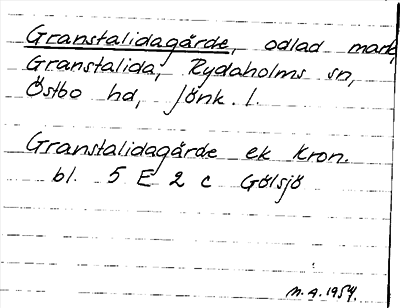 Granstalidagärde, odlad mark,
Granstalida, Rydaholms sn,
Östbo hd, Jönk. l.
Granstalidagärde ek kron.
bl. 5 E 2 c Gölsjö
M.A. 1954.